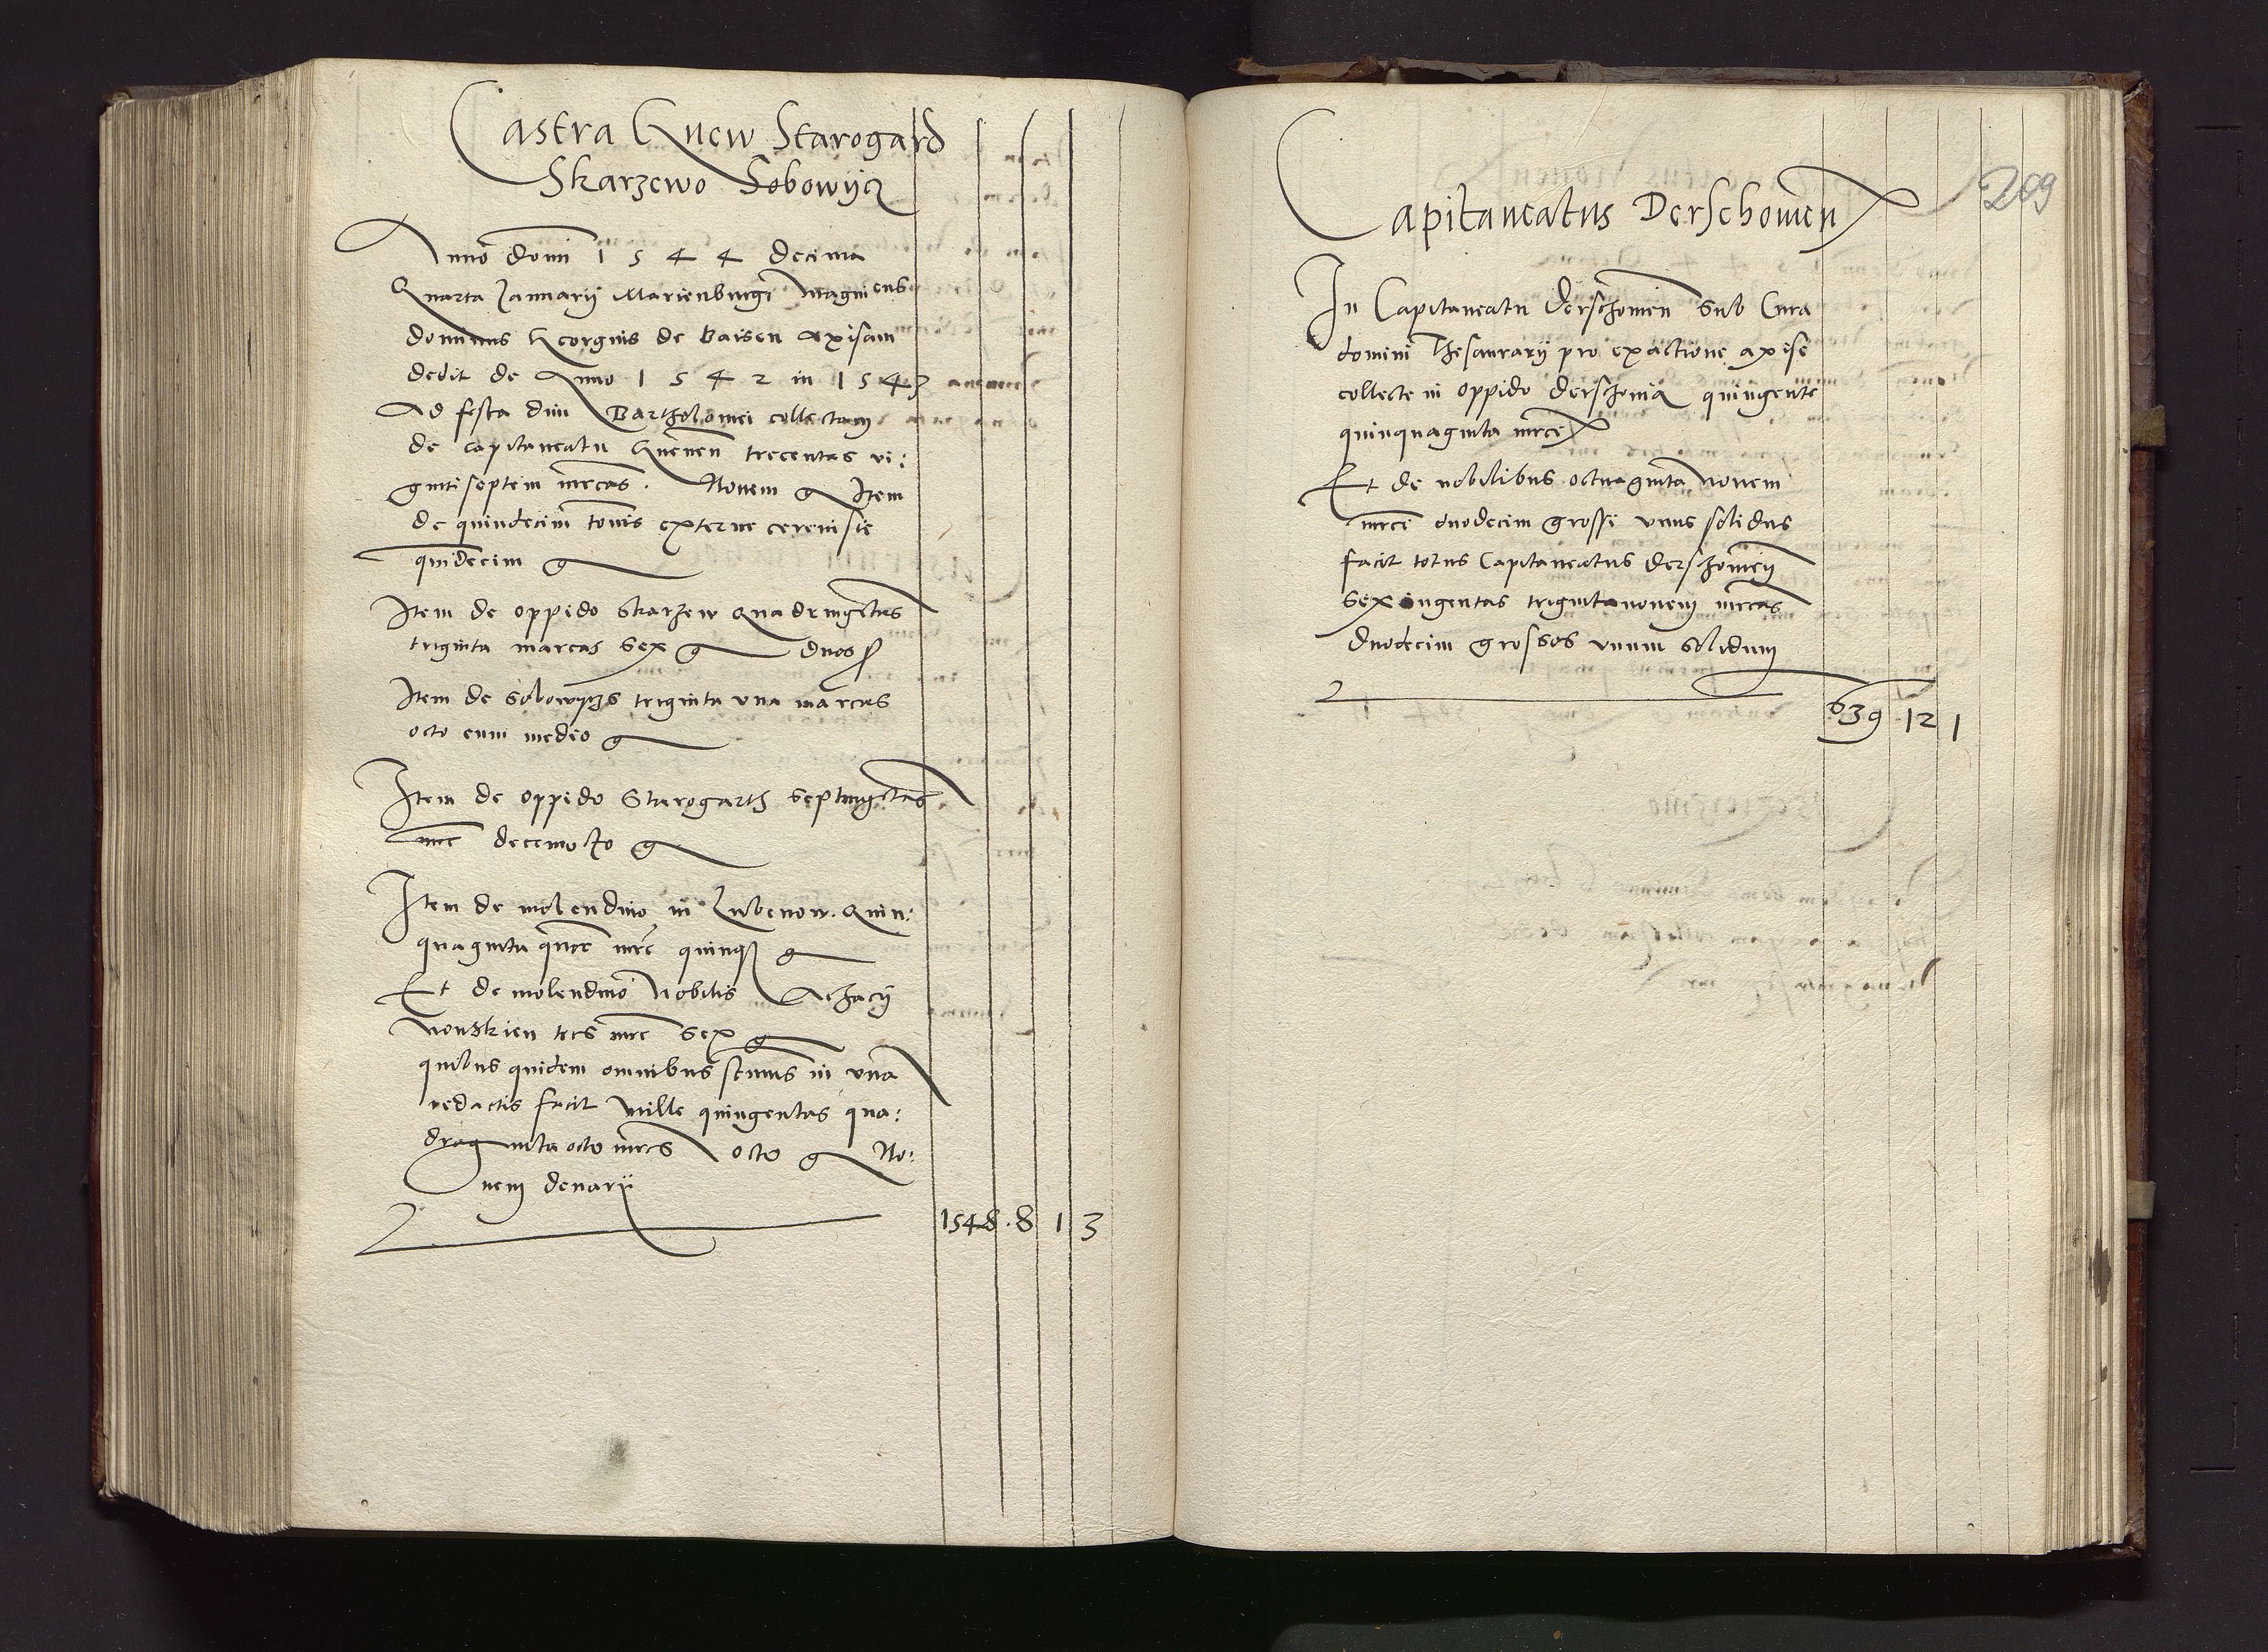 Castra Gnew Starogard
Skarzewo Sobowijcz
Anno domi 1 5 4 4 decima
Quarta Januarij Marienburgi magnificus
dominus Georgius de Baisen axisam
dedit de Anno 1 5 4 2 in 1 5 4 3
Ad festa divi Bartholomei collectam
de capitaneatu Gneven trecentas vi:
gintiseptem mrcas. Novem g Item
de quindecim tonis externe cerevisie
quidecim g
Item de oppido Skarzew quadringetas
triginta marcas sex g duos ß
Item de Sobowyczs triginta una marcas
octo cum medio g
Item de oppido Starogarth septingetas
mrc decemocto g
Item de molendino in Lubenow. Quin:
quaginta mrc quinq g
Et de molendino Nobilis Achacij
tres mrc sex g
quibus quidem omnibus summis in una
redactis facit mille quingentas qua:
draginta octo mrcs octo g No:
vem denarij
1548 . 8 1 3
209
Capitaneatus Derschovien
In Capitaneatu Derschovien sub Cura
domini Thesaurarij pro exactione axise
collecte in oppido Derschovia quingente
quinquaginta mrce
Et de nobilibus octuaginta novem
mrce duodecim grossi unus solidus
facit totus Capitaneatus Derschovien
sexingentas trigintanovem mrcas
duodecim grossos unum solidum
639 . 12 1